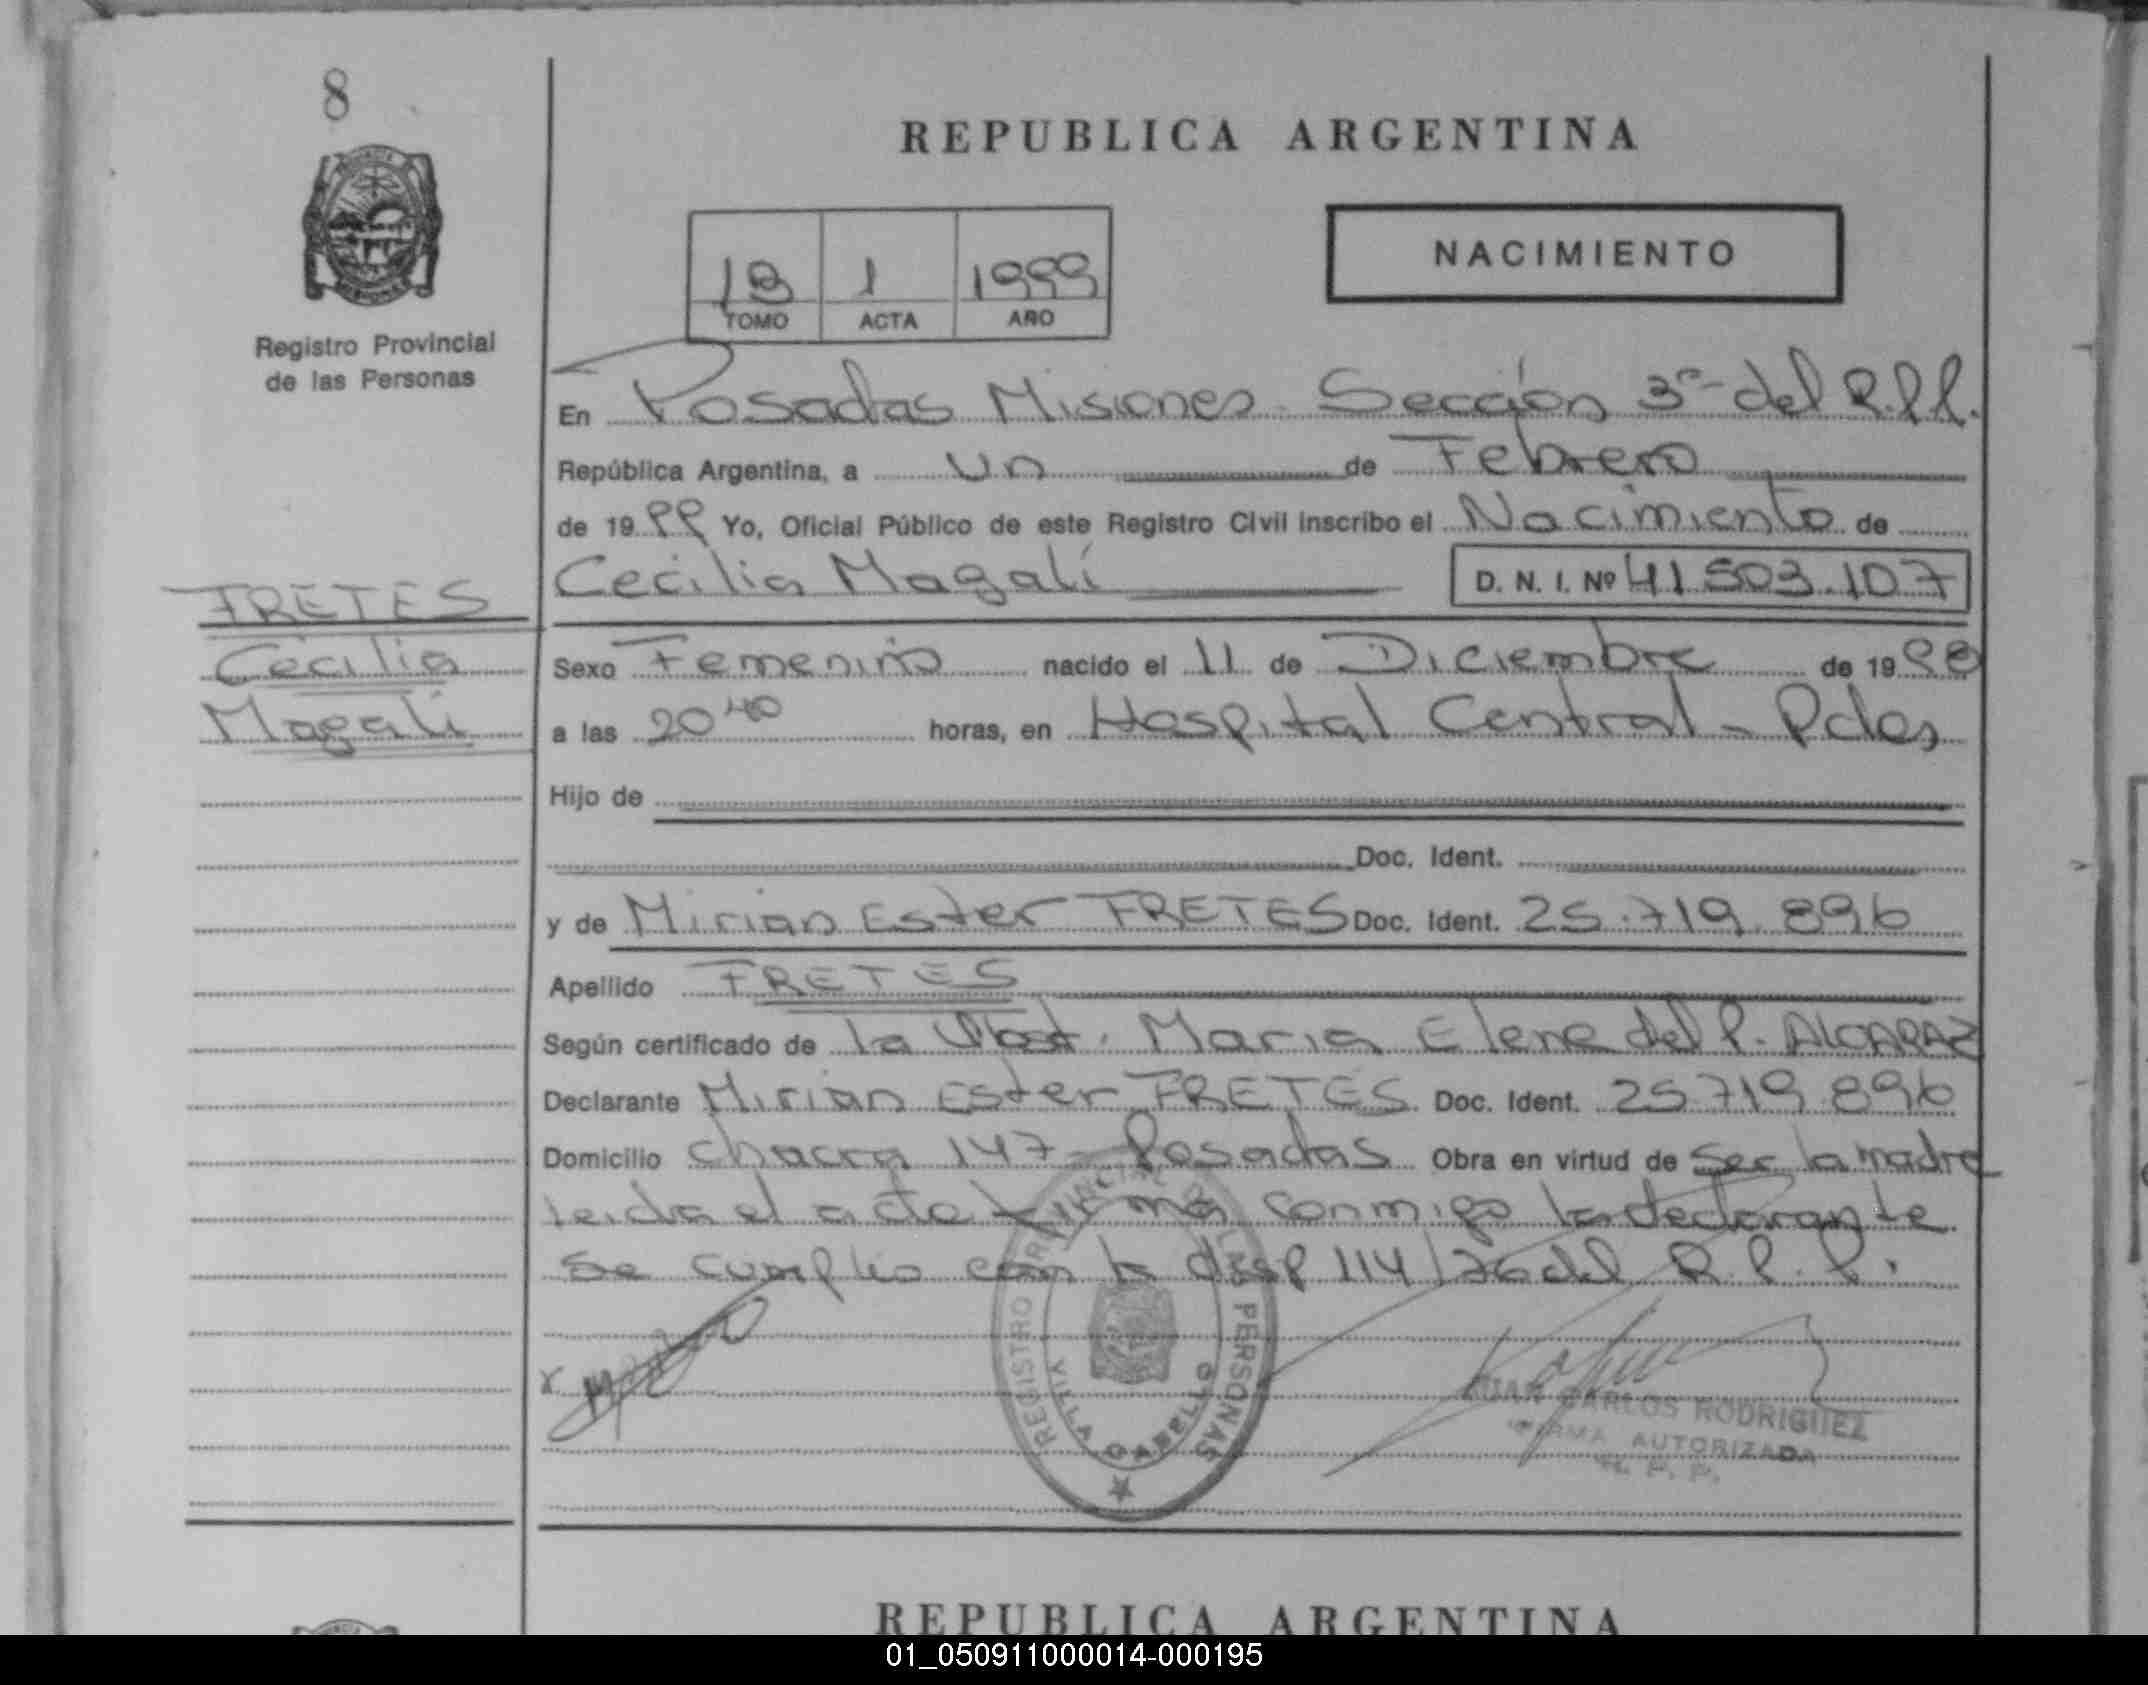 8
REPUBLICA ARGENTINA
1 1999
TOMO ACTA AÑO
NACIMIENTO
Registro Provincial
de las Personas
En Posadas Misiones Sección 3ª del R.P.P.
República Argentina, a un de Febrero
de 1999 Yo, Oficial Público de este Registro Civil inscribo el Nacimiento de
Cecilia Magalí D. N. I. Nº 41.503.107
FRETES
Cecilia
Magalí
Sexo Femenino nacido el 11 de Diciembre de 1998
a las 20 40 horas, en Hospital Central - Pdas
Hijo de
Doc. Ident.
y de Mirian Ester FRETES Doc. Ident. 25.719.896
Apellido FRETES
Según certificado de la Obst. Maria Elena del P. ALCARAZ
Declarante Mirian Ester FRETES Doc. Ident. 25 719 896
Domicilio Chacra 147 - Posadas Obra en virtud de ser la madre
leida el acta firma conmigo la declarante
se cumplio con la disp 114/76 del R.P.P.
REGISTRO PROVINCIAL DE LAS PERSONAS
VILLA CABELLO
JUAN CARLOS RODRIGUEZ
FIRMA AUTORIZADA
R. P. P.
REPUBLICA ARGENTINA
01_050911000014-000195